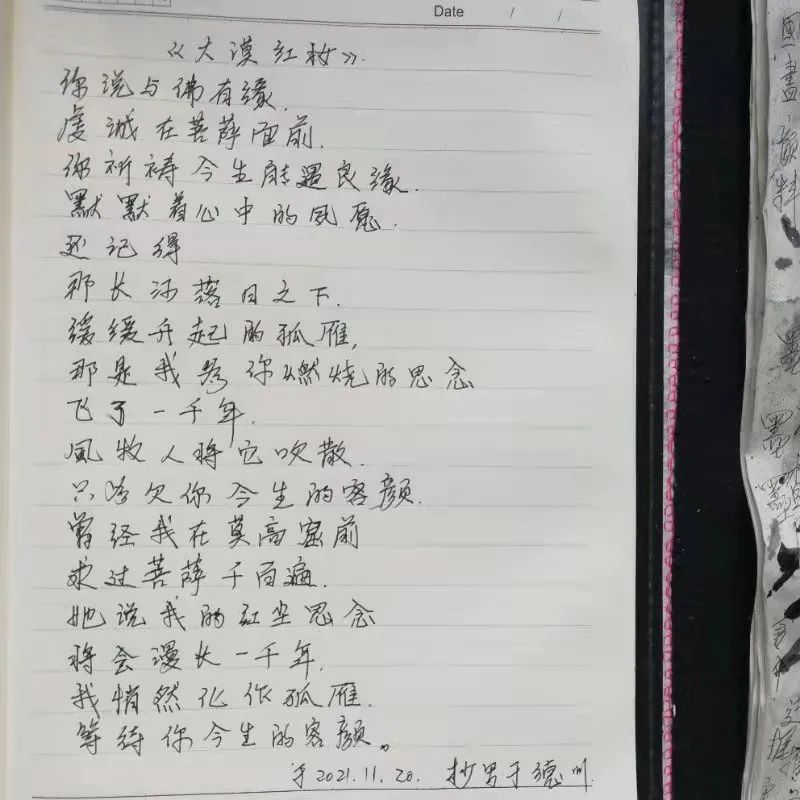 Date / /
《大漠红妆》.
你说与佛有缘.
虔诚在菩萨面前.
你祈祷今生能遇良缘.
默默着心中的夙愿.
还记得
那长河落日之下.
缓缓升起的孤雁,
那是我为你燃烧的思念
飞了一千年.
風牧人将它吹散.
只为欠你今生的容颜.
曾经我在莫高窟前
求过菩萨千百遍.
她说我的红尘思念
将会漫长一千年.
我悄然化作孤雁.
等待你今生的容颜。
于2021.11.20. 抄男于德州.
圖畫
顏料
墨
墨